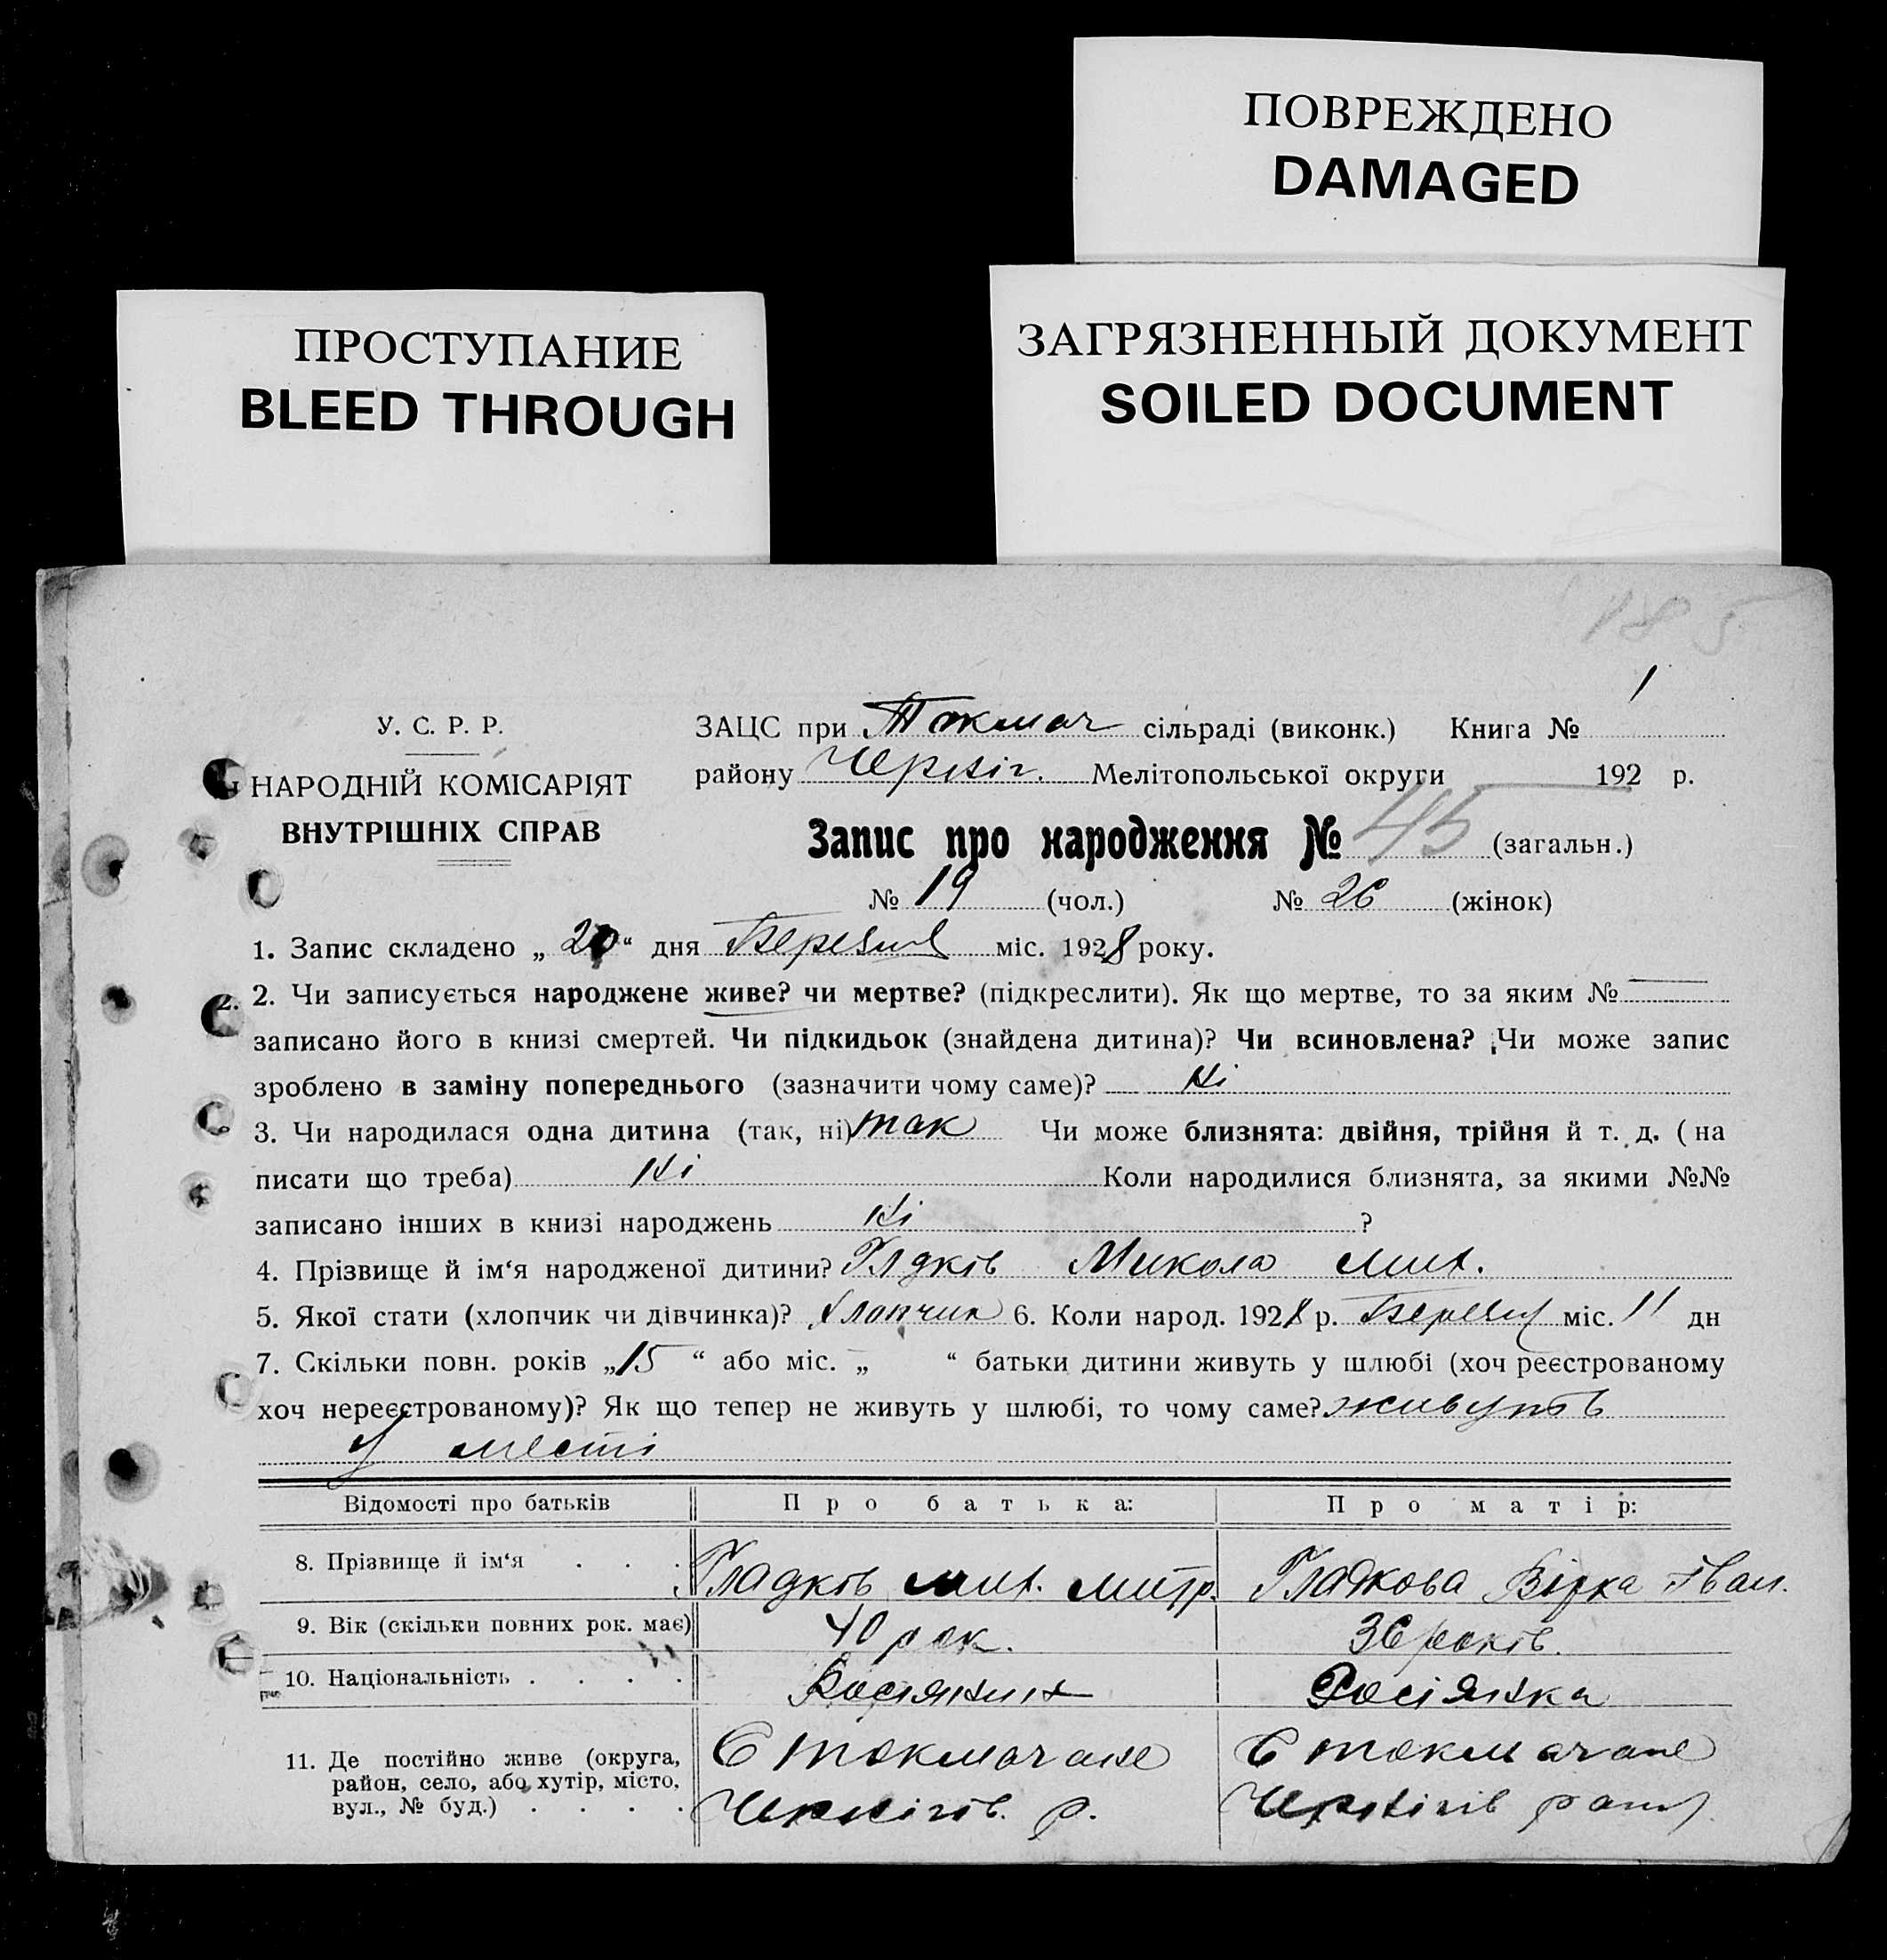 ПОВРЕЖДЕНО
DAMAGED
ПРОСТУПАНИЕ
BLEED THROUGH
ЗАГРЯЗНЕННЫЙ ДОКУМЕНТ
SOILED DOCUMENT
185
У. С. Р. Р.
НАРОДНІЙ КОМІСАРІЯТ
ВНУТРІШНІХ СПРАВ
ЗАЦС при Токмач сільраді (виконк.) Книга № 1
району Черніг. Мелітопольської округи 192 р.
Запис про народження № 45 (загальн.)
№ 19 (чол.) № 26 (жінок)
1. Запис складено „ 20 “ дня Березня міс. 1928 року.
2. Чи записується народжене живе? чи мертве? (підкреслити). Як що мертве, то за яким № —
записано його в книзі смертей. Чи підкидьок (знайдена дитина)? Чи всиновлена? Чи може запис
зроблено в заміну попереднього (зазначити чому саме)? Ні
3. Чи народилася одна дитина (так, ні) так Чи може близнята: двійня, трійня й т. д. (на
писати що треба) Ні Коли народилися близнята, за якими №№
записано інших в книзі народжень Ні ?
4. Прізвище й ім‘я народженої дитини? Глдків Микола Мих.
5. Якої стати (хлопчик чи дівчинка)? Хлопчик 6. Коли народ. 1928 р. Березня міс. 11 дн
7. Скільки повн. років „ 15 “ або міс. „ “ батьки дитини живуть у шлюбі (хоч реєстрованому
хоч нереєстрованому)? Як що тепер не живуть у шлюбі, то чому саме? живуть
У месті
Відомості про батьків Про батька: Про матір:
8. Прізвище й ім‘я . . . Гладків Мих. Митр. Гладкова Вірка Іван.
9. Вік (скільки повних рок. має) 40 рок. 36 років.
10. Національність . . . . Росіянин Росіянка
11. Де постійно живе (округа, район, село, або хутір, місто, вул., № буд.) . . . .
С Токмачане С Токмачане
Чернігів. р. Чернігів